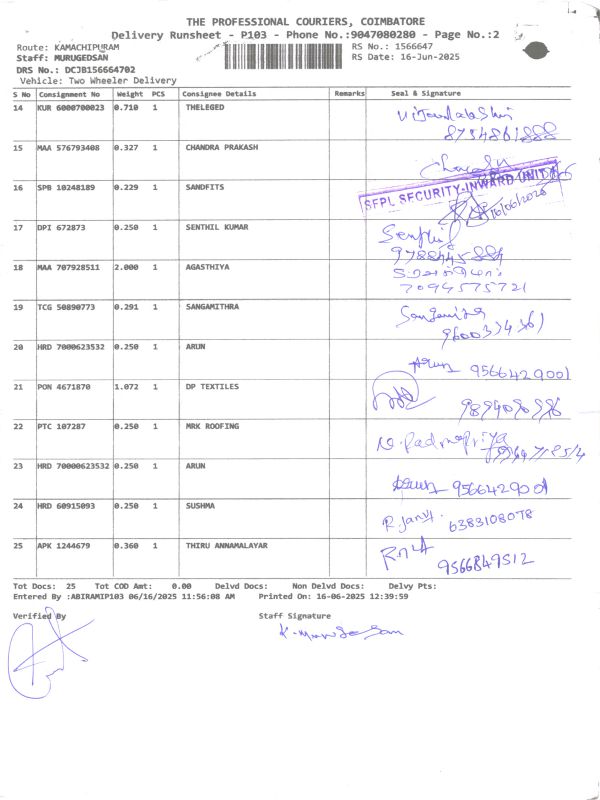 THE PROFESSIONAL COURIERS, COIMBATORE
Delivery Runsheet - P103 - Phone No.:9047080280 - Page No.:2
Route: KAMACHIPURAM
RS No.: 1566647
Staff: MURUGEDSAN
RS Date: 16-Jun-2025
DRS No.: DCJB156664702
Vehicle: Two Wheeler Delivery
S No Consignment No Weight PCS Consignee Details Remarks Seal & Signature
14 KUR 6000700023 0.710 1 THELEGED
15 MAA 576793408 0.327 1 CHANDRA PRAKASH
16 SPB 10248189 0.229 1 SANDFITS
SFPL SECURITY-INWARD UNIT
16/06/2025
17 DPI 672873 0.250 1 SENTHIL KUMAR
18 MAA 707928511 2.000 1 AGASTHIYA
7094575721
19 TCG 50890773 0.291 1 SANGAMITHRA
20 HRD 7000623532 0.250 1 ARUN Arun 9566429001
21 PON 4671870 1.072 1 DP TEXTILES
22 PTC 107287 0.250 1 MRK ROOFING N. Padmapriya
23 HRD 70000623532 0.250 1 ARUN Arun 9566429001
24 HRD 60915093 0.250 1 SUSHMA 6383108078
25 APK 1244679 0.360 1 THIRU ANNAMALAYAR 9566849512
Tot Docs: 25 Tot COD Amt: 0.00 Delvd Docs: Non Delvd Docs: Delvy Pts:
Entered By :ABIRAMIP103 06/16/2025 11:56:08 AM Printed On: 16-06-2025 12:39:59
Verified By Staff Signature